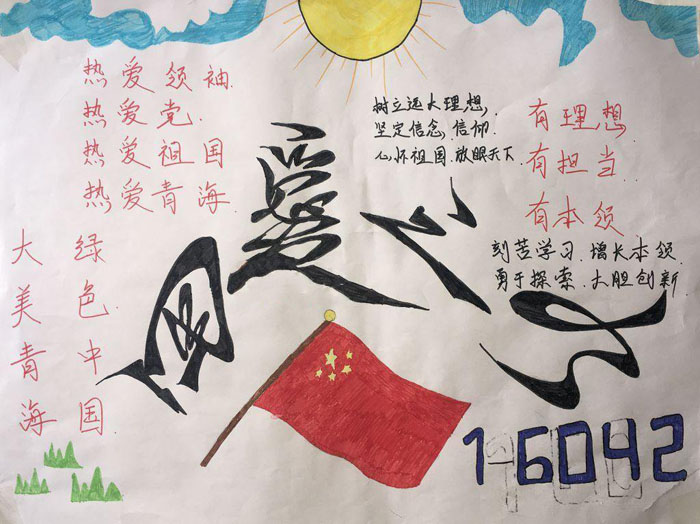 热爱领袖.
热爱党.
热爱祖国
热爱青海.
树立远大理想.
坚定信念.信仰.
心怀祖国.放眼天下
有理想
有担当
有本领
刻苦学习.增长本领.
勇于探索.大胆创新
国爱
绿色中国
大美青海
1-6042